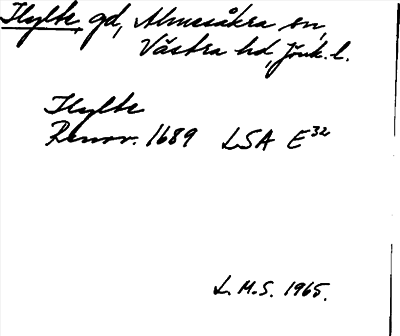 Hylte, gd, Almesåkra sn,
Västra hd, Jönk. l.
Hylte
Renov. 1689 LSA E32
L. M. S. 1965.